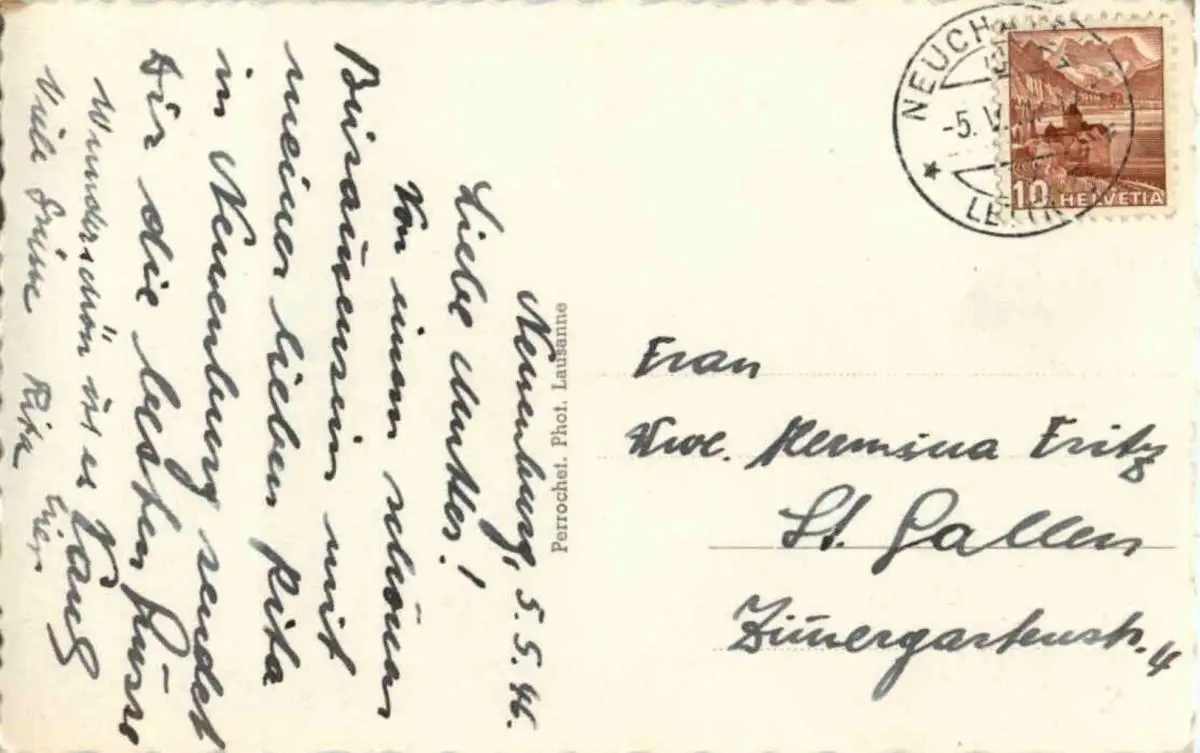 Neuenburg, 5.5.46.
Liebe Mutter!
Von einem schönen
Beisam̄ensein mit
meiner lieben Rita
in Neuenburg sendet
Dir die besten Grüsse
Paul
Wunderschön ist es hier.
Viele Grüsse Rita
Perrochet. Phot. Lausanne
NEUCH
-5. V.
LETTR
10 HELVETIA
Frau
Wwe. Hermina Fritz
St. Gallen
Zim̄ergartenstr. 4